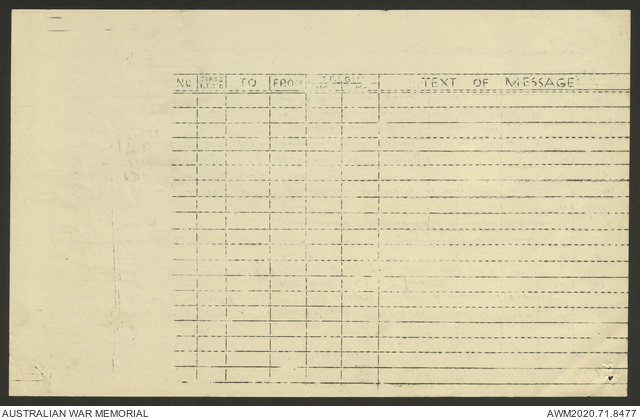 NO TIME RECD TO FROM TEXT OF MESSAGE
AUSTRALIAN WAR MEMORIAL AWM2020.71.8477